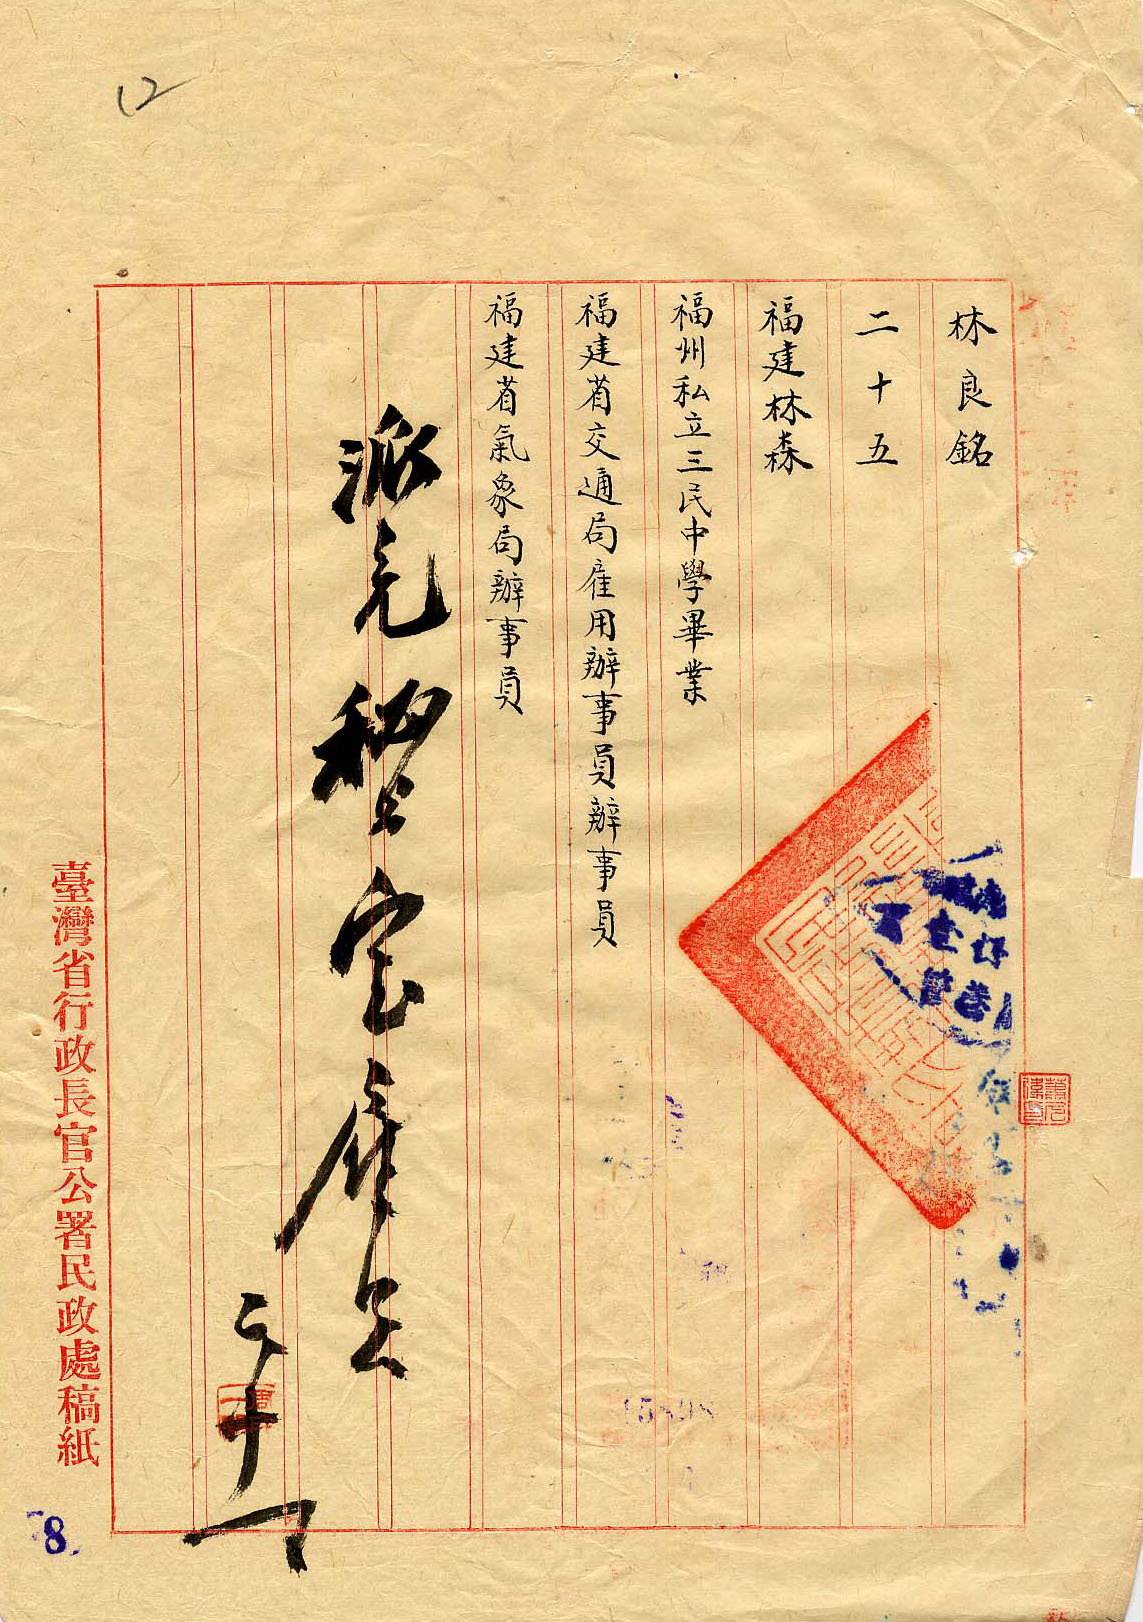 林良銘
二十五
福建林森
福州私立三民中學畢業
福建省交通局雇用辦事員辦事員
福建省氣象局辦事員
派充秘書室雇員
臺灣省行政長官公署民政處稿紙
12
8